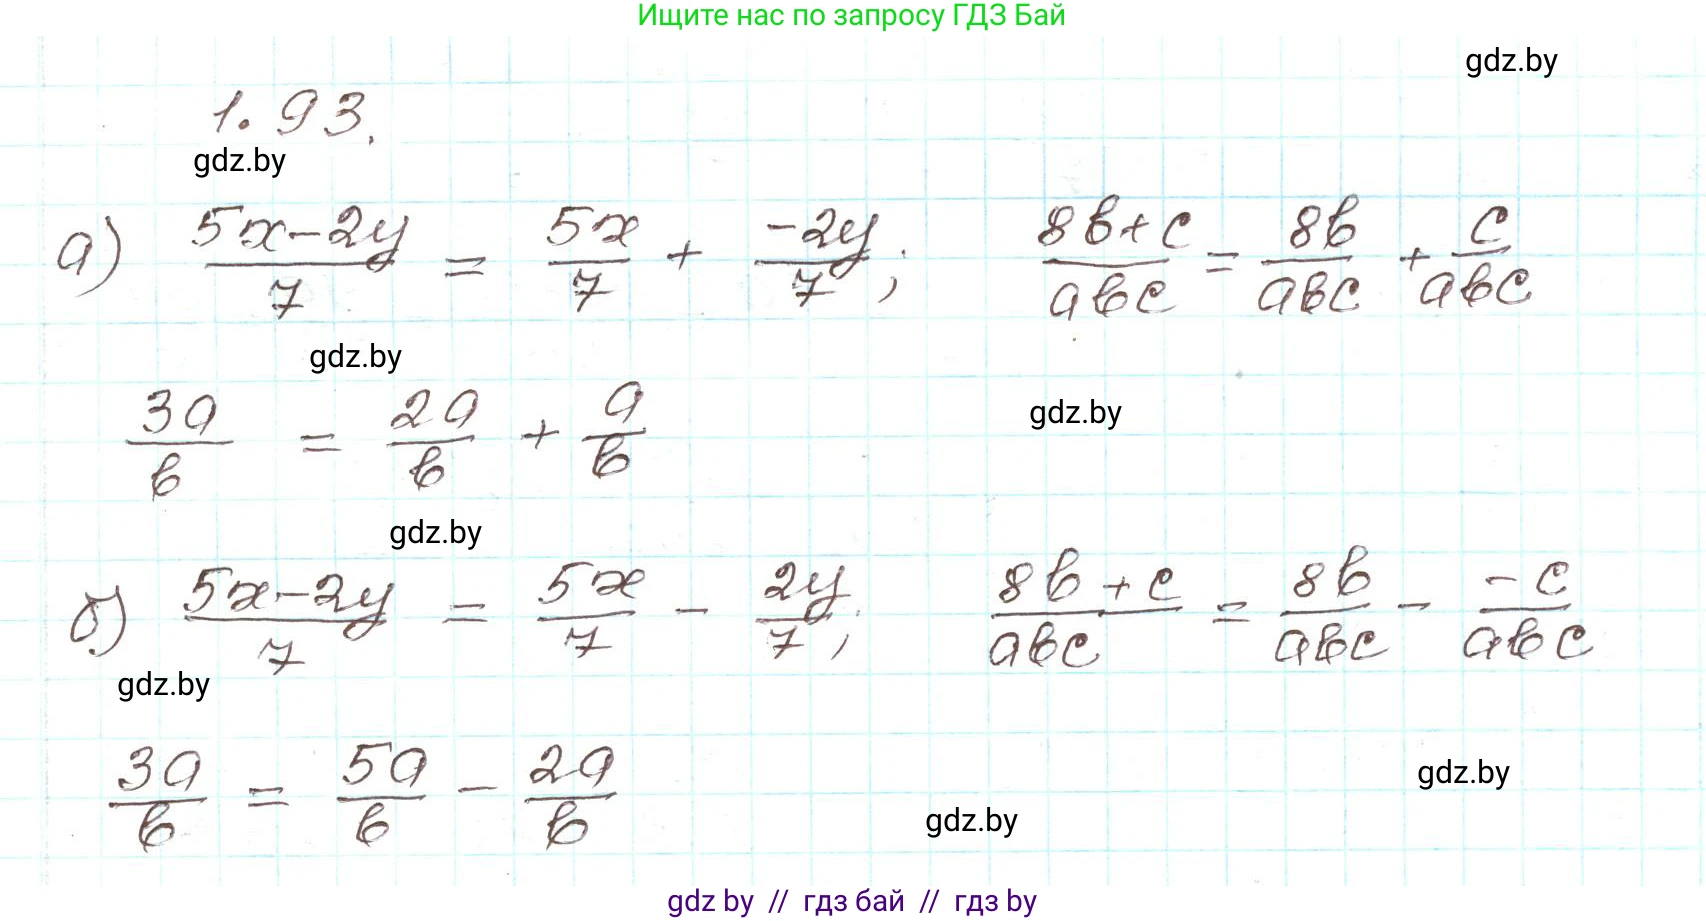 Ищите нас по запросу ГДЗ Бай
gdz.by
1.93.
gdz.by
а) (5x-2y)/7 = 5x/7 + (-2y)/7; (8b+c)/(abc) = 8b/(abc) + c/(abc)
gdz.by
gdz.by
3a/b = 2a/b + a/b
gdz.by
б) (5x-2y)/7 = 5x/7 - 2y/7; (8b+c)/(abc) = 8b/(abc) - (-c)/(abc)
gdz.by
3a/b = 5a/b - 2a/b
gdz.by
gdz.by
gdz by // гдз бай // гдз by